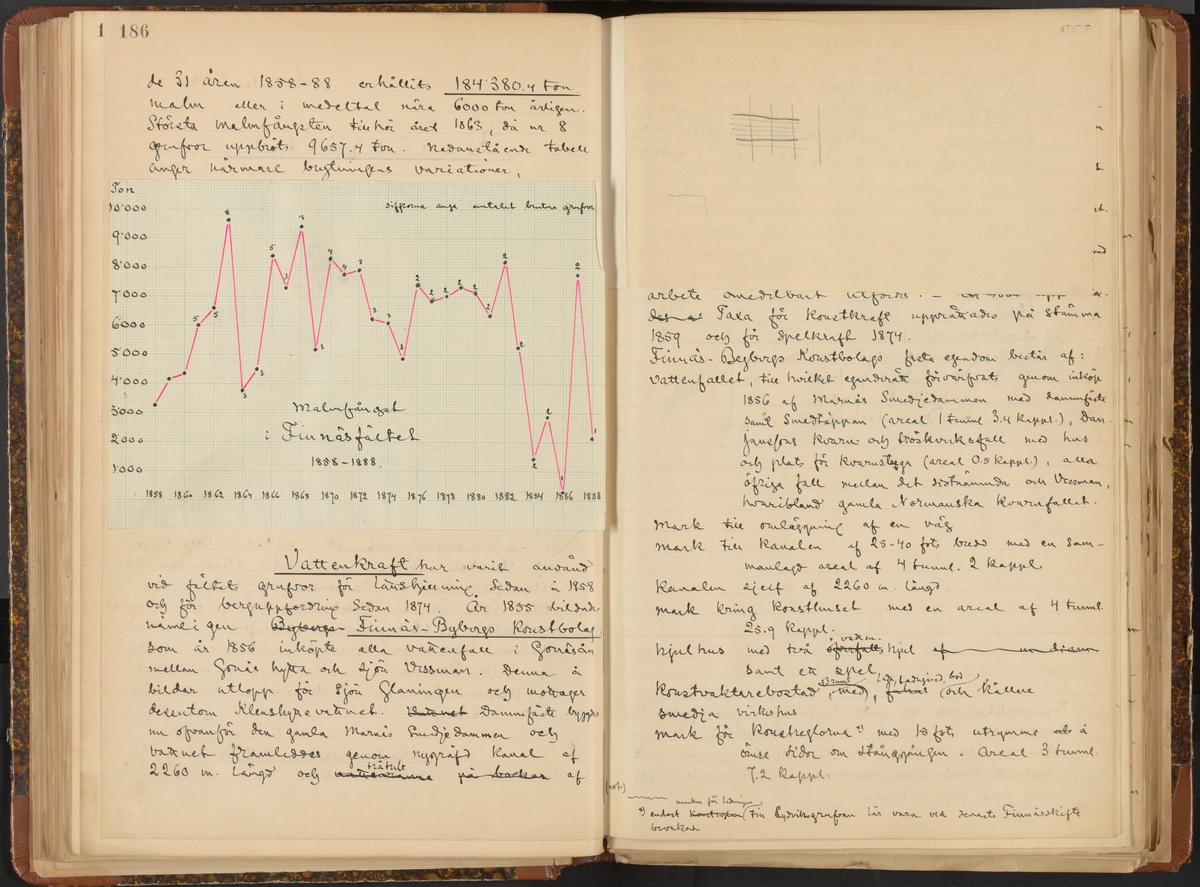 1 186
de 31 åren 1858-88 erhållits 184'380.4 ton
malm eller i medeltal nära 6000 ton årligen.
Största malmfångsten tillhör året 1863, då ur 8
grufvor uppbröts 9657.4 ton. Nedanstående tabell
anger närmare brytningens variationer.
Ton
Siffrorna ange antalet brutna grufvor
10'000
9'000
8'000
7'000
6'000
5'000
4'000
3'000
2'000
1'000
8 5 5 3 3 5 3 3 3 4 4 3 3 3 3 2 2 2 2 2 2 2 2 2 2 1 2 1
Malmfånget
i Finnäsfältet
1858-1888.
1858 1860 1862 1864 1866 1868 1870 1872 1874 1876 1878 1880 1882 1884 1886 1888
Vattenkraft har varit använd
vid fältet grufvor för länshållning sedan år 1858
och för berguppfordring sedan 1874. År 1855 bildade
nämligen Bybergs Finnäs-Bybergs Konstbolag
som år 1856 inköpte alla vattenfall i Gonäsån
mellan Gonäs hytta och sjön Wessman. Denna å
bildar utlopp för sjön Glaningen och mottager
dessutom Klenshyttevattnet. Vattnet Dammfäste byggdes
nu ofvanför den gamla Marnäs Smedjedammen och
vattnet framleddes genom nygräfd kanal af
trätub
2260 m. längd och på bockar af
arbete omedelbart utfördes. –
Taxa för konstkraft upprättades på stämma
1859 och för spelkraft 1874.
Finnäs-Bybergs Konstbolags fasta egendom består af:
Vattenfallet, till hvilket eganderätt förvärfvats genom inköp
1856 af Marnäs Smedjedammen med dammfäste
samt Smedtäppan (areal 1 tunnl. 3.4 kappl.), Dan
Jansons kvarn- och Tröskverksfall med hus
och plats för kvarnstuga (areal 0.5 kappl.), alla
öfriga fall mellan det sistnämnda och Wessman,
hvaribland gamla Normanska kvarnfallet.
Mark till omläggning af en väg
mark till kanalen af 25-40 fots bredd med en sam-
manlagd areal af 4 tunnl. 2 kappl.
Kanalen sjelf af 2260 m. längd.
mark kring konsthuset med en areal af 4 tunnl.
25.9 kappl.
vatten
hjulhus med två öfverfalls hjul af en diam
samt ett spel
Konstvaktarebostad med, fähus och källare
Smedja virkeshus
mark för konstreglorna*) med 18 fots utrymme å
ömse sidor om stånggången. Areal 3 tunnl.
7.2 kappl.
(not)
*) endast till Lydviksgrufvan lär vara vid senaste Finnässkifte
bevakad